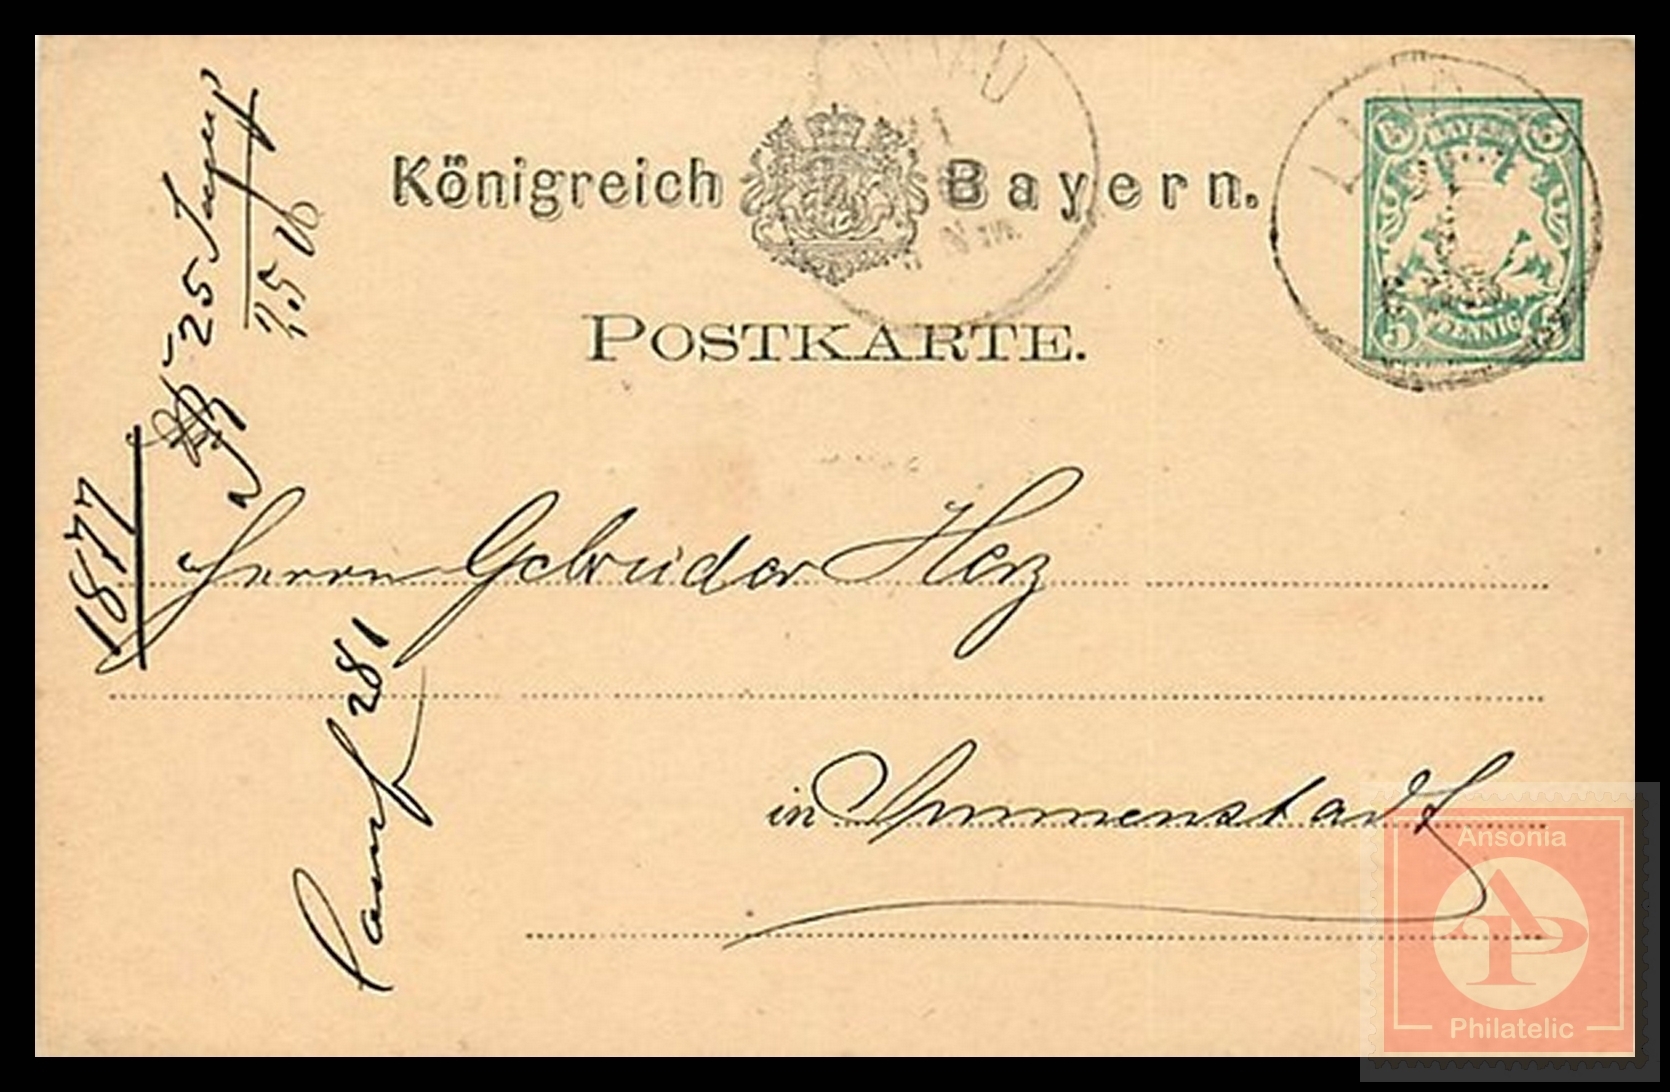 Königreich Bayern.
POSTKARTE.
BAYERN
5 5
5 PFENNIG 5
1877
25
25/6
Herrn Gebrüder Herz
281
in Immenstadt
Ansonia
AP
Philatelic